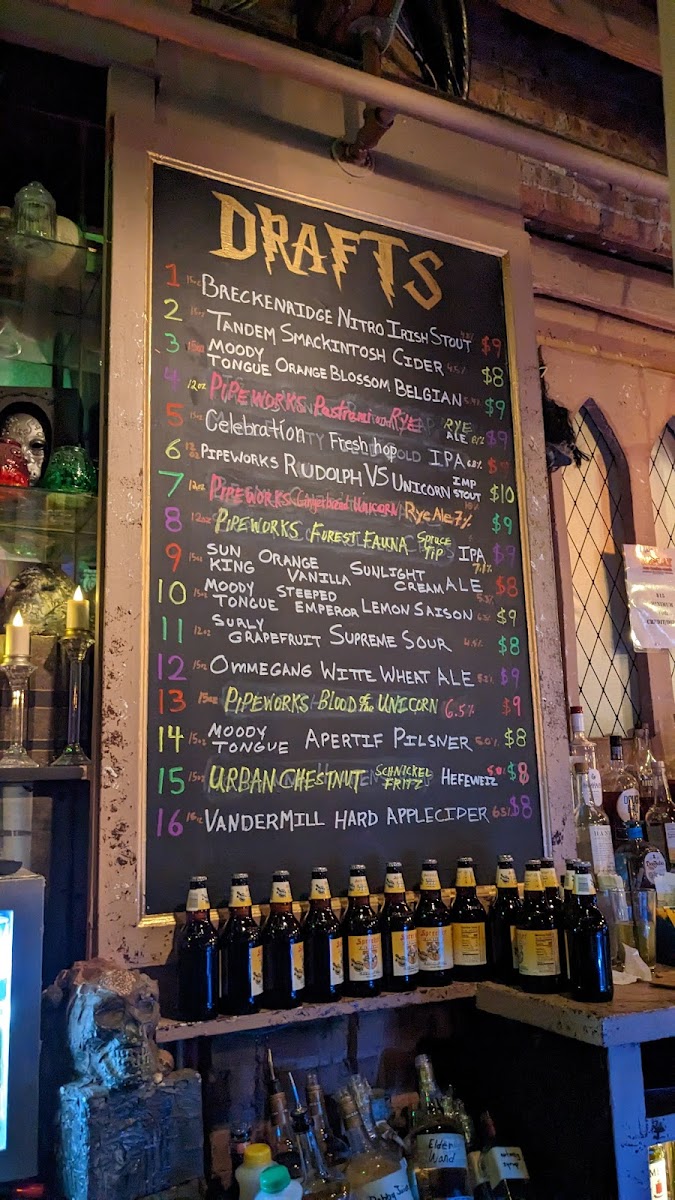 DRAFTS
1 16oz BRECKENRIDGE NITRO IRISH STOUT $9
2 TANDEM SMACKINTOSH CIDER 4.5% $8
3 15oz MOODY TONGUE ORANGE BLOSSOM BELGIAN $9
4 12oz PIPEWORKS Pastrami on RYE RYE ALE $9
5 Celebration Fresh hop IPA 6.8%
6 12oz PIPEWORKS RUDOLPH VS UNICORN IMP STOUT 10% $10
7 12oz PIPEWORKS Gingerbread UNICORN Rye Ale 7% $9
8 12oz PIPEWORKS FOREST FAUNA SPRUCE TIP IPA 7.1% $9
9 15oz SUN KING ORANGE VANILLA SUNLIGHT CREAM ALE 5.3% $8
10 15oz MOODY TONGUE STEEPED EMPEROR LEMON SAISON $9
11 12oz SURLY GRAPEFRUIT SUPREME SOUR 4.5% $8
12 15oz OMMEGANG WITTE WHEAT ALE 5.2% $9
13 15oz PIPEWORKS BLOOD of the UNICORN 6.5% $9
14 15oz MOODY TONGUE APERTIF PILSNER 5.0% $8
15 15oz URBAN CHESTNUT SCHNICKEL FRITZ HEFEWEIZ 5.0% $8
16 16oz VANDERMILL HARD APPLECIDER $8
$15
MINIMUM
Elder
Wand